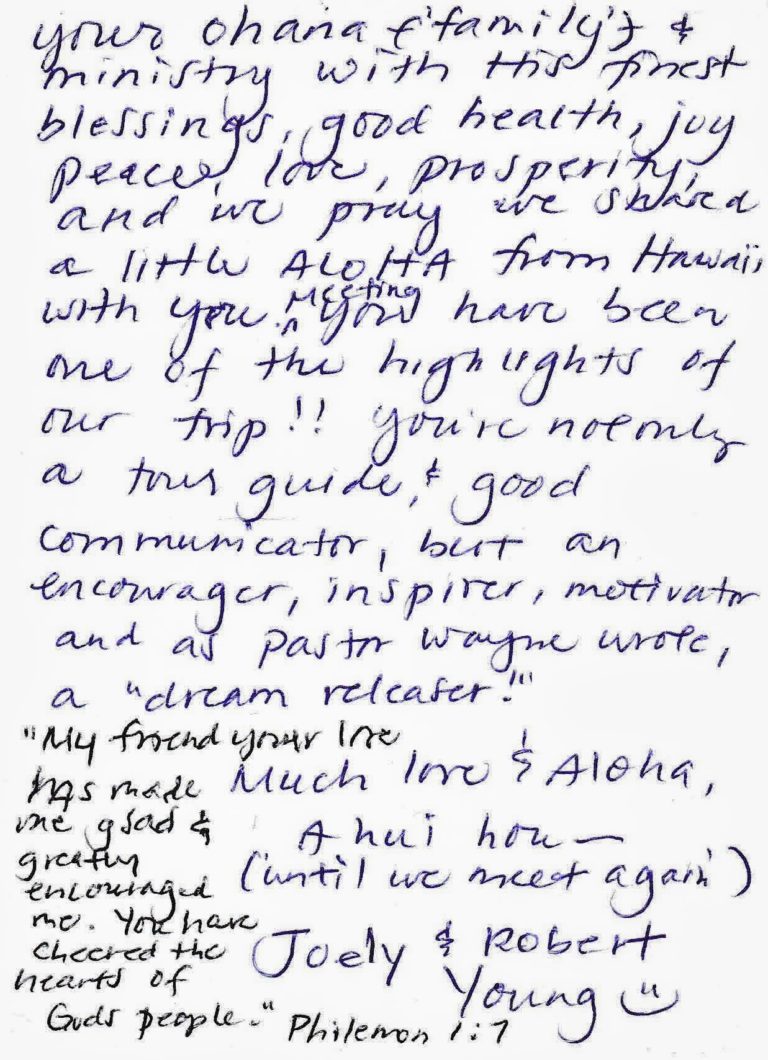 your ohana ('family') &
ministry with His finest
blessings, good health, joy
peace, love, prosperity,
and we pray we shared
a little ALOHA from Hawaii,
with you. Meeting you have been
one of the highlights of
our trip!! You're not only
a tour guide, & good
communicator, but an
encourager, inspirer, motivator
and as Pastor Wayne wrote,
a "dream releaser!"
Much love & Aloha,
A hui hou —
('until we meet again')
Joely & Robert
Young
"My friend your love
has made
me glad &
greatly
encouraged
me. You have
cheered the
hearts of
Gods people." Philemon 1:7